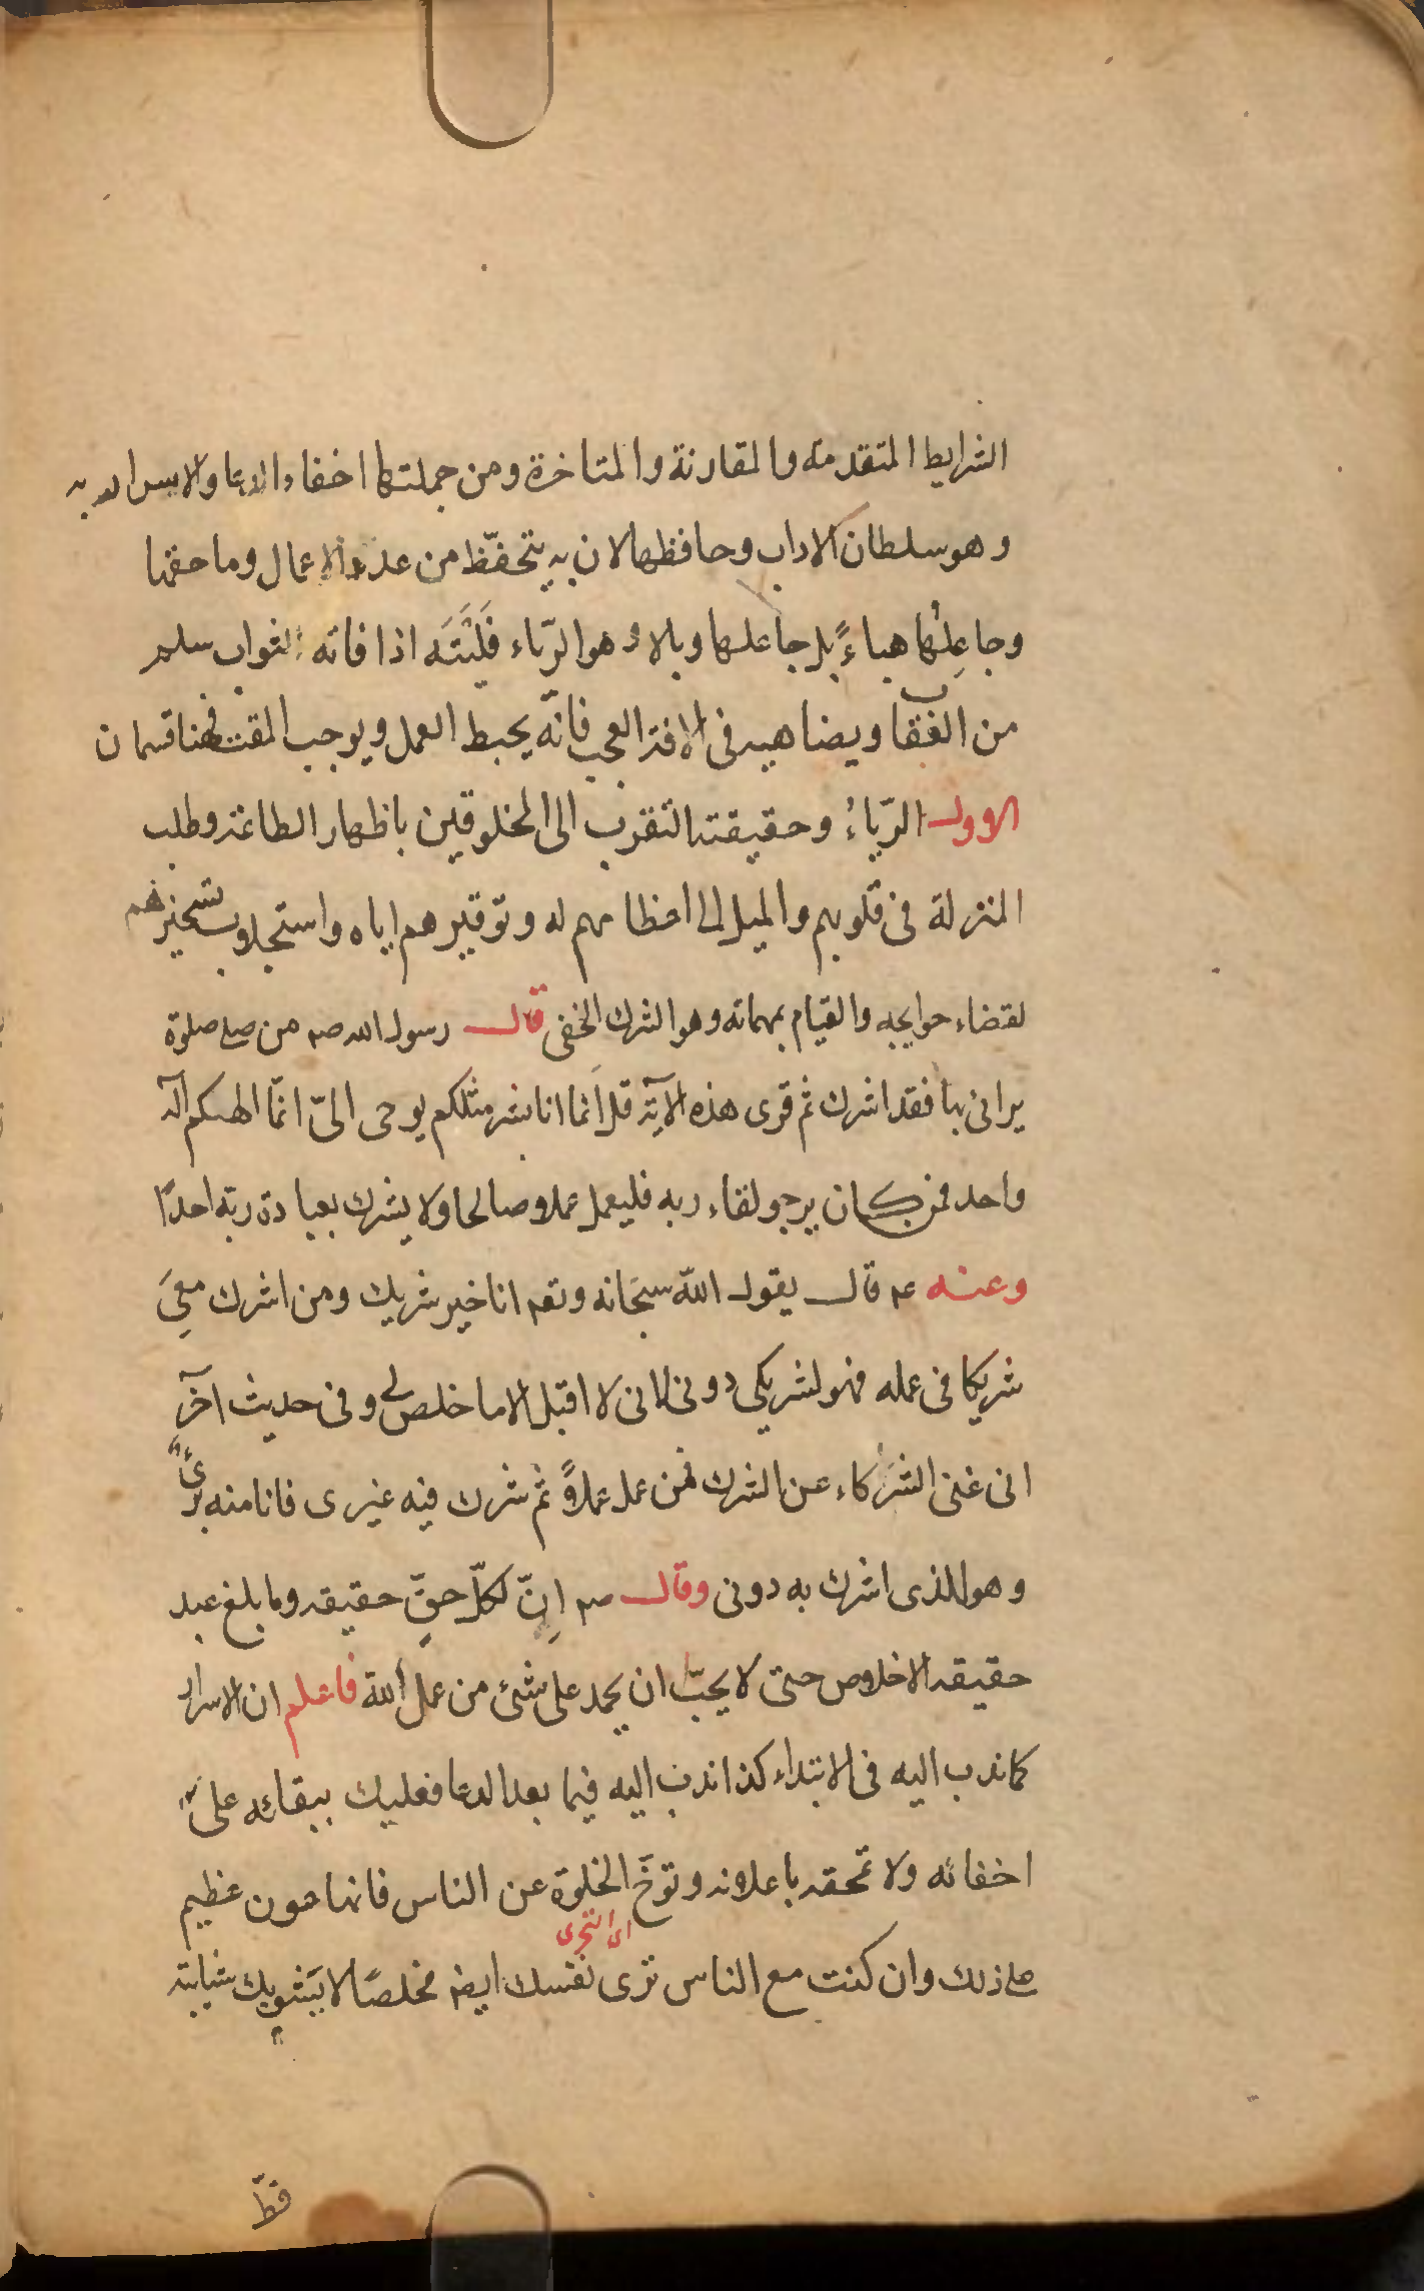 الشرايط المتقدمة والمقارنة والمتاخرة ومن جملتها اخفاء الدعا والاسرار به
وهو سلطان الاداب وحافظها لان به يتحفّظ من عدو الاعمال وماحقها
وجاعِلُها هباءً بل جاعلها وبالا وهو الرّياء فَلَيْتَه اذا فاته الثواب سلم
من العقاب ويضاهيه في الافة العجب فانّه يحبط العمل ويوجب المقت فهنا قسمان
الاول الرّياءُ وحقيقته التقرب الى المخلوقين باظهار الطاعة وطلب
المنزلة في قلوبهم والميل الى اعظامهم له وتوقيرهم اياه واستجلاب تسخيرهم
لقضاء حوايجه والقيام بمهماته وهو الشرك الخفى قال رسول الله صم من صلى صلوة
يرائى بها فقد اشرك ثم قرى هذه الآية قل انما انا بشر مثلكم يوحى الىّ انّما الهكم اله
واحد فمن كان يرجو لقاء ربه فليعمل عملا صالحا ولا يشرك بعبادة ربّه احدًا
وعنه عم قال يقول الله سبحانه وتعم انا خير شريك ومن اشرك معِىَ
شريكا فى عمله فهو لشريكى دونى لانى لا اقبل الا ما خلص لى وفى حديث آخر
انى غنى الشركاء عن الشرك فمن عمل عملاً ثم شرك فيه غيرى فانا منه برئٌ
وهو للذى اشرك به دونى وقال صم اِنّ لكلّ حقٍّ حقيقه وما بلغ عبد
حقيقه الاخلاص حتى لا يحبّ ان يحمد على شئ من عمل لله فاعلم ان الاسرار
كما ندب اليه فى الابتداء كذا ندب اليه فيما بعد الدعا فعليك ببقائه على
اخفائه ولا تمحقه باعلانه وتوخَّ الخلوة عن الناس فانها عون عظيم
اى التحرى
على ذلك وان كنت مع الناس ترى نفسك ايضم مخلصًا لا يَشُوبك شايبة
قطّ